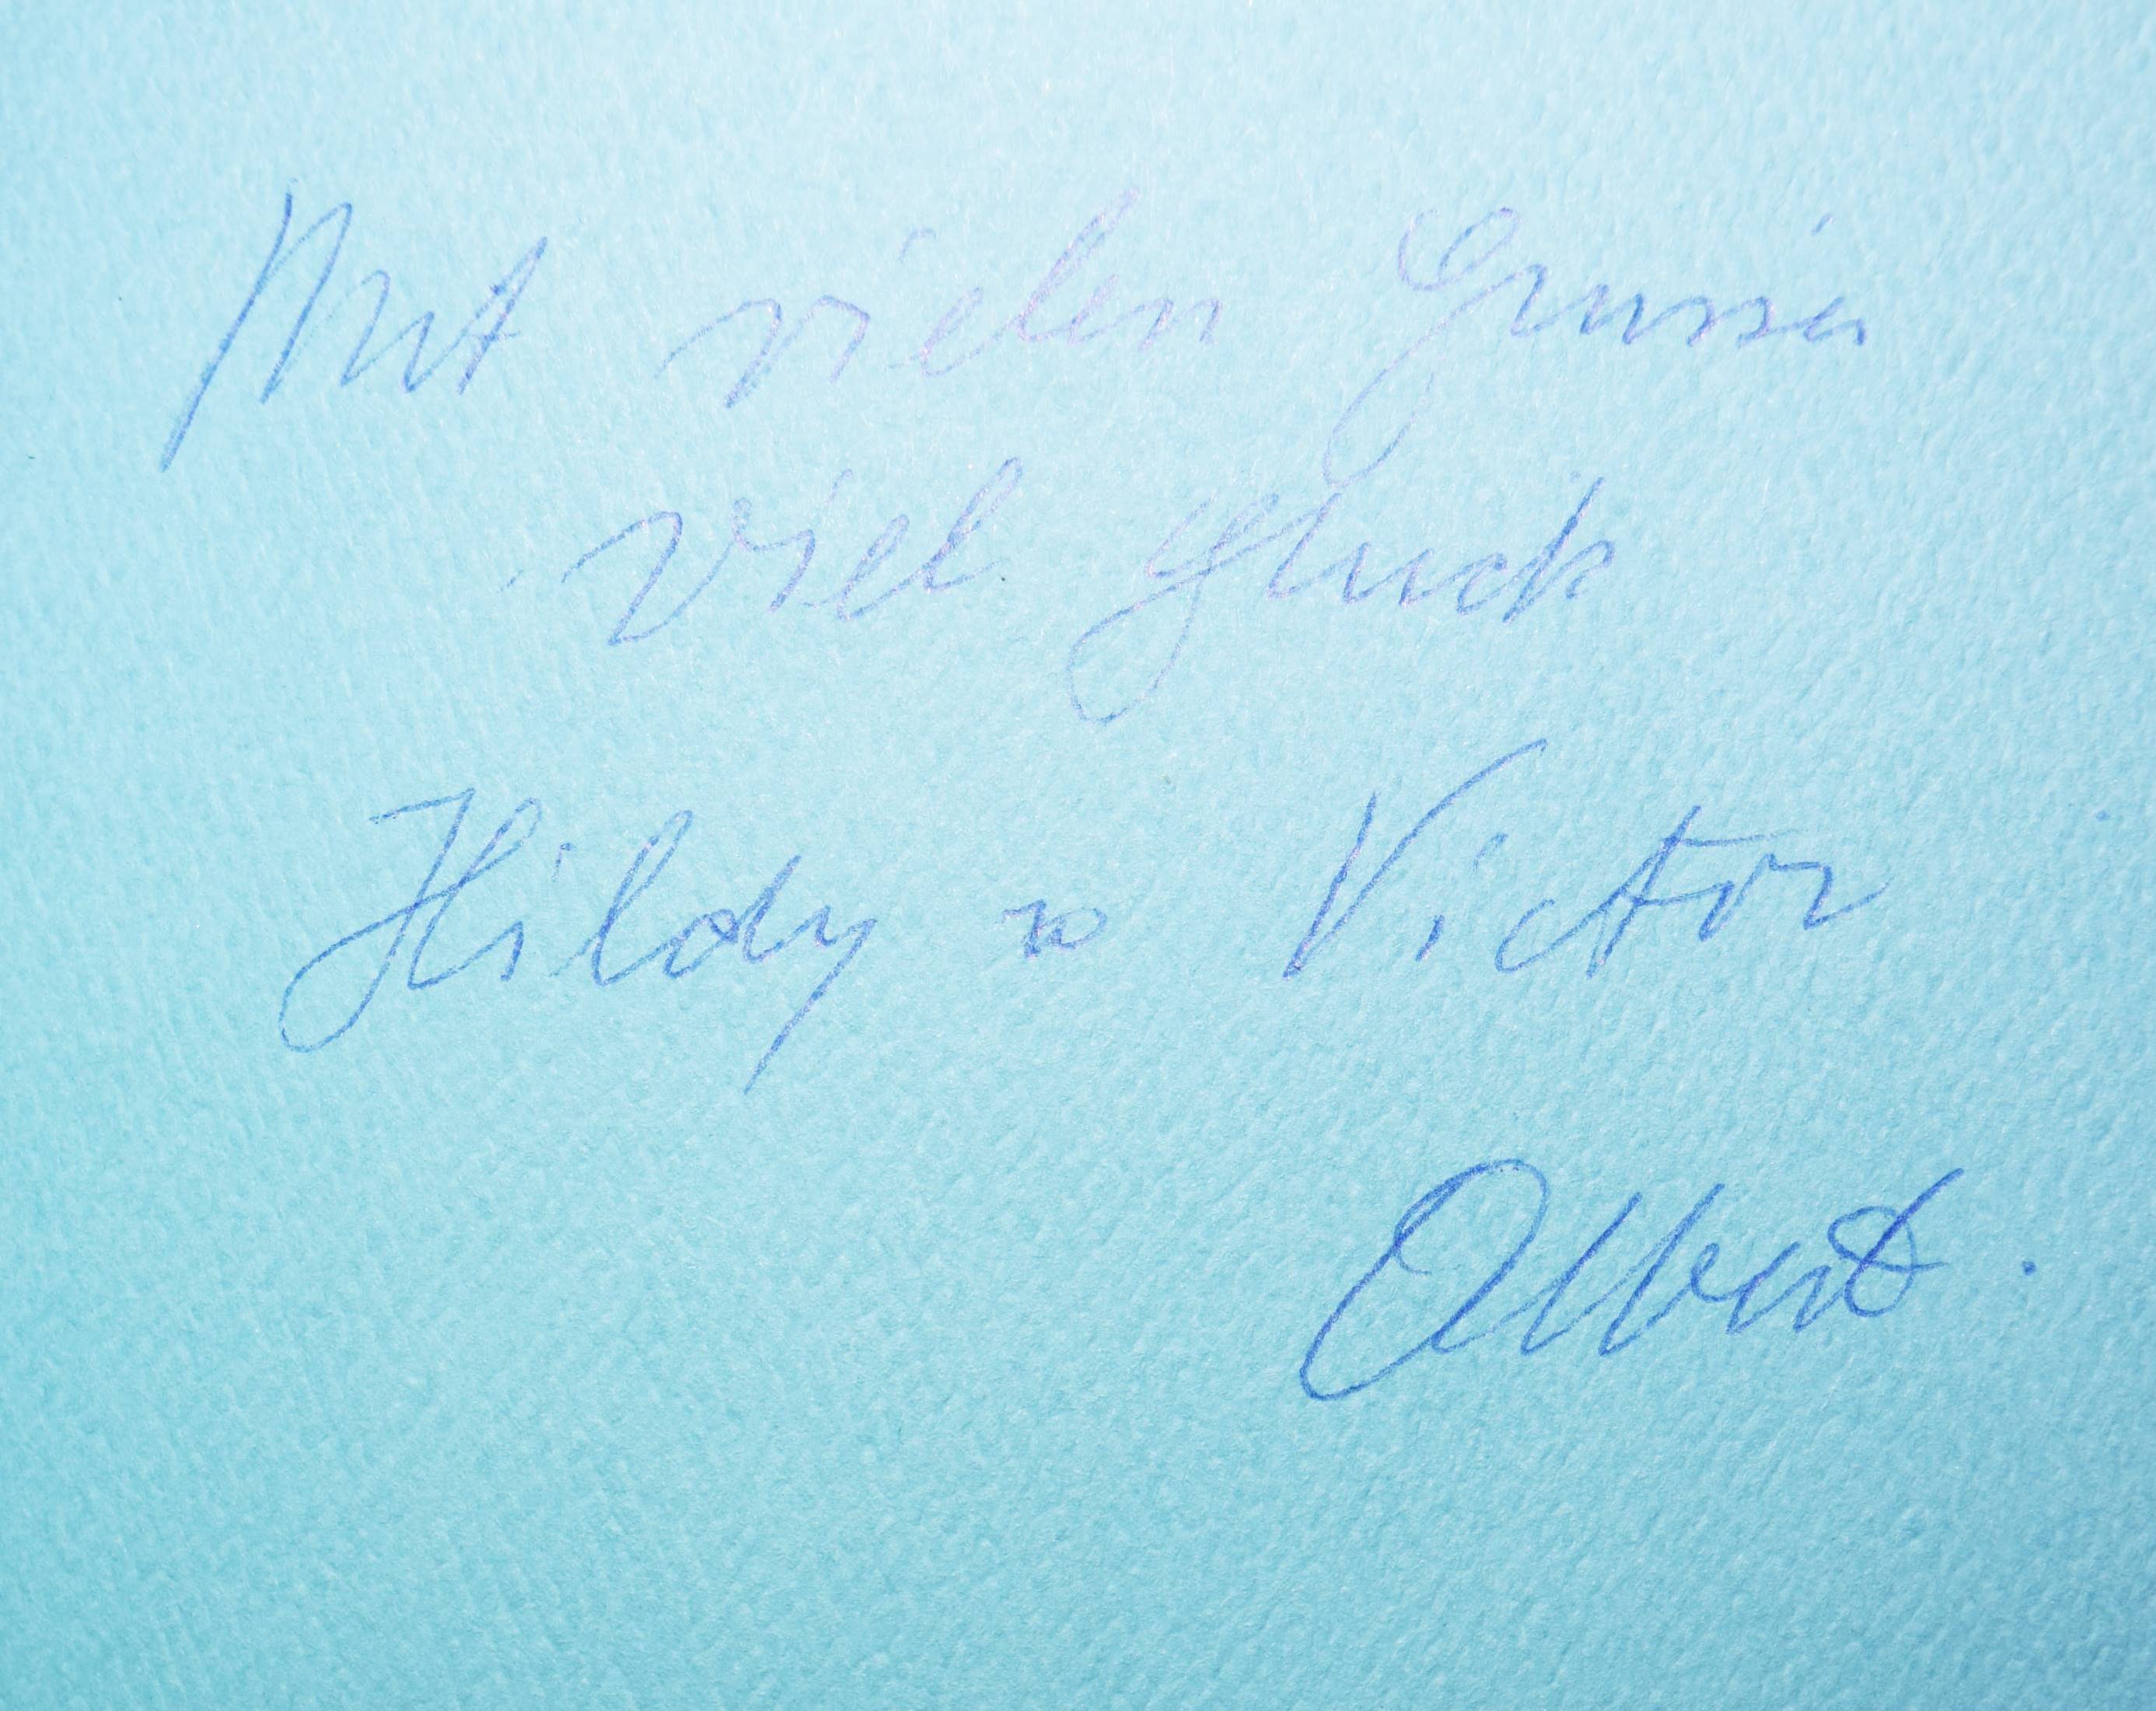 Mit vielen Grussen
viel Gluck
Hildy & Victor
Albert.